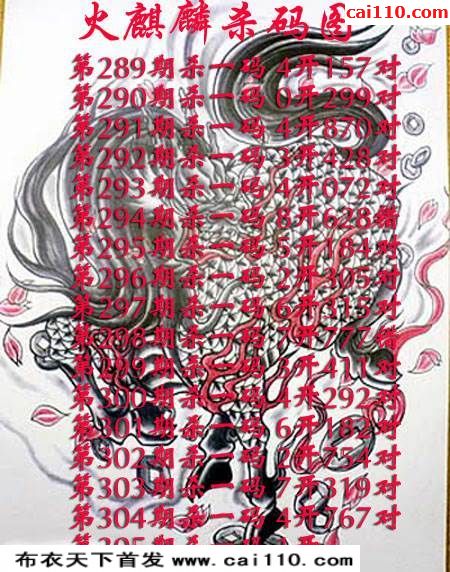 cai110.com
火麒麟杀码图
第289期杀一码 4开157对
第290期杀一码 0开299对
第291期杀一码 4开870对
第292期杀一码 3开428对
第293期杀一码 4开072对
第294期杀一码 8开628错
第295期杀一码 5开184对
第296期杀一码 2开305对
第297期杀一码 6开315对
第298期杀一码 7开777错
第299期杀一码 3开411对
第300期杀一码 4开292对
第301期杀一码 6开182对
第302期杀一码 2开754对
第303期杀一码 7开319对
第304期杀一码 4开767对
布衣天下首发 www.cai110.com